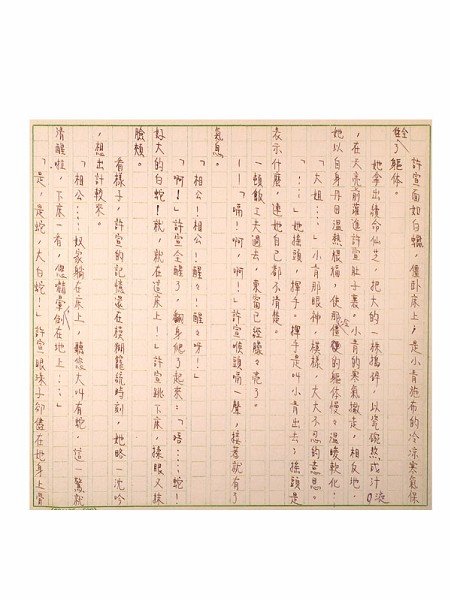 許宣面如白蠟，僵臥床上，是小青施布的冷凉寒氣保
全了軀体。
她拿出續命仙芝，把大的一株搗碎，以瓷碗熬成汁液
，在天亮前灌進許宣肚子裏。小青的寒氣撤走，相反地，
她以自身丹田溫熱模擬，使那僵冷的軀体慢慢溫暖軟化
「大姐……」小青那眼神、模樣，大大不忍的意思。
「……」她搖頭，揮手。揮手是叫小青出去；搖頭是
表示什麼，連她自己都不清楚。
一頓飯工夫過去，東窗已經朦々亮了。
——「嗝！啊，啊！」許宣喉頭嗝一聲，接著就有了
氣息。
「相公！相公！醒々！醒々呀！」
「啊！」許宣全醒了，翻身爬了起來：「唔……蛇！
好大的白蛇！就，就在這床上！」許宣跳下床，揉眼又抹
臉頰。
看樣子，許宣的記憶還在模糊籠統時刻，她略一沈吟
，想出計較來。
「相公……奴家躺在床上，聽您大叫有蛇，這一驚就
清醒啦，下床一看，您嚇暈倒在地上……」
「是，是蛇，大白蛇！」許宣眼珠子卻儘在她身上骨